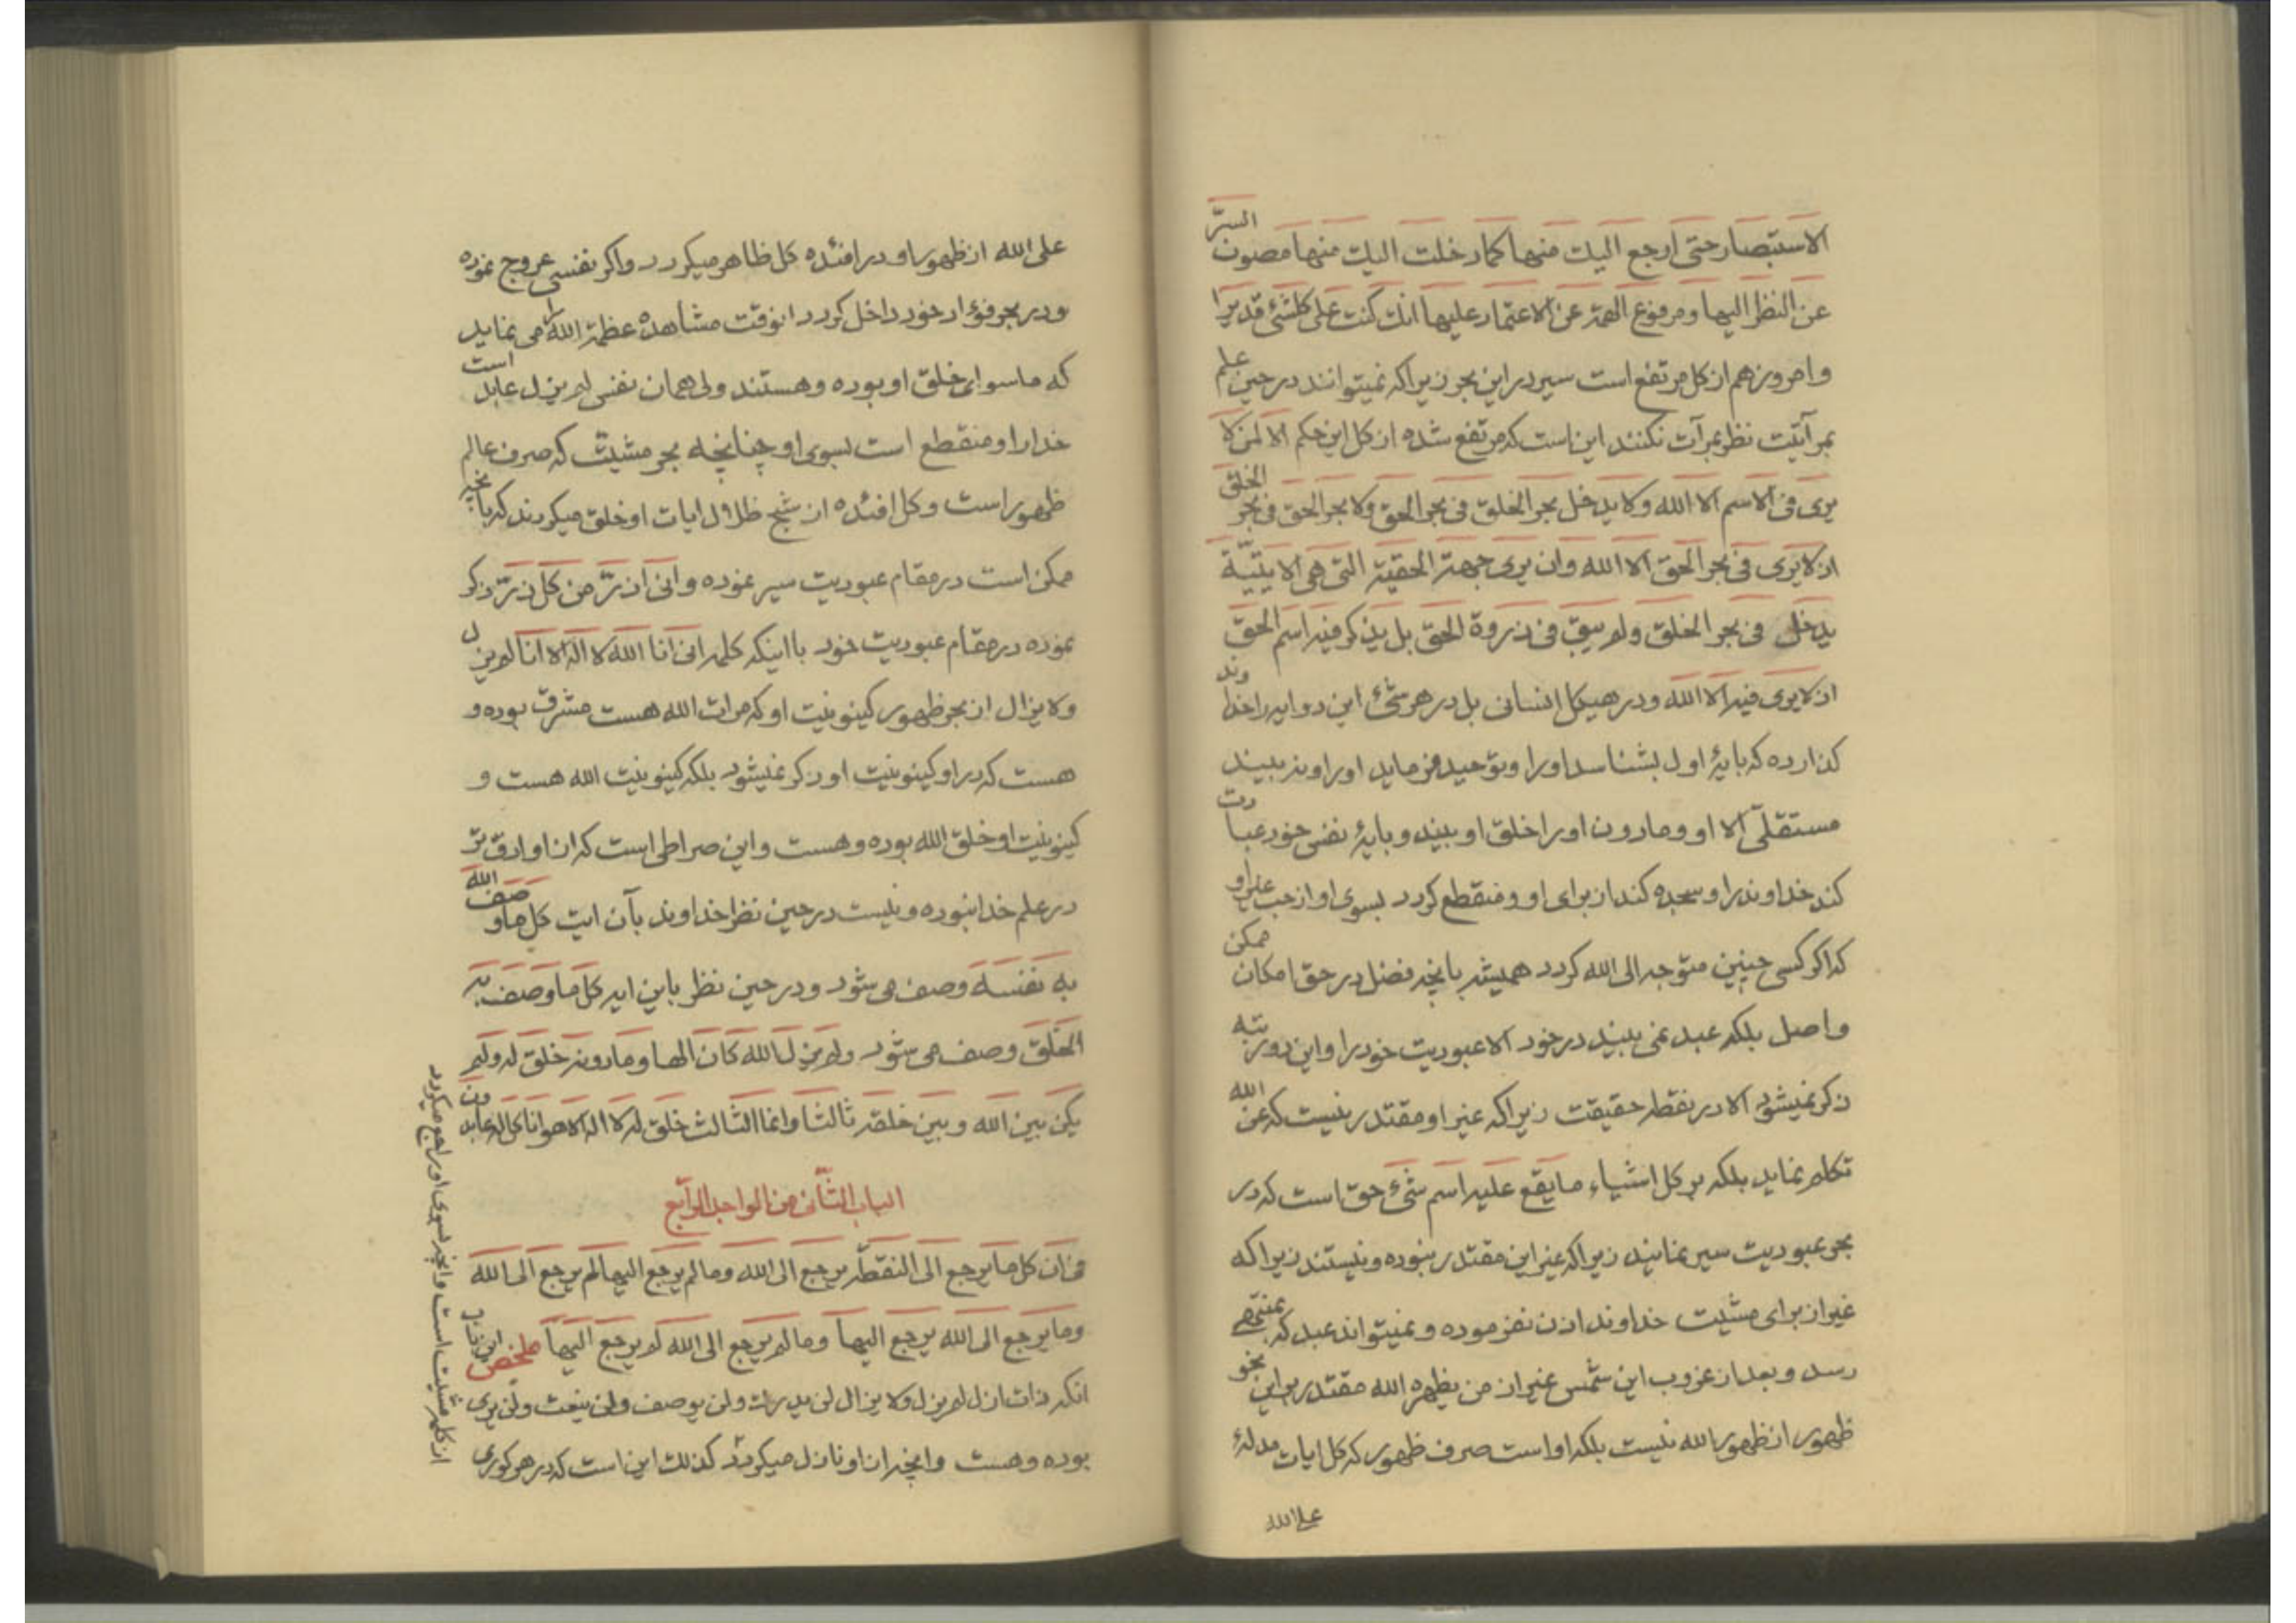 الاستبصار حتی ارجع الیك منها کما دخلت الیك منها مصون السرّ
عن النظر الیها و مرفوع الهمة عن الاعتماد علیها انك کنت علی کلشئ قدیرا
و امروز هم از کل مرتفع است سیر در این بحر زیرا که نمیتوانند در حین علم
بمرآتیت نظر بمرآت نکنند این است که مرتفع شده از کل این حکم الا لمن لا
یری فی الاسم الا الله و لا یدخل بحر الخلق فی بحر الحق و لا بحر الحق فی بحر الخلق
اذ لا یری فی بحر الحق الا الله و ان یری جهة الحقیة التی هی الایتیّة
یدخل فی بحر الخلق و لم یبق فی ذروة الحق بل یذکر فیه اسم الحق
اذ لا یری فیه الا الله و در هیکل انسانی بل در هر شئ این دو ایه را خداوند
گذارده که بایهٔ اول بشناسد او را و توحید فرماید او را و نه بیند
مستقلی الا او و مادون او را خلق او بیند و بایهٔ نفس خود عبادت
کند خداوند را و سجده کند از برای او و منقطع گردد بسوی او از حب غیر او
که اگر کسی چنین متوجه الی الله گردد همیشه بانچه فضل در حق امکان ممکن
واصل بلکه عبد نمی بیند در خود الا عبودیت خود را و این دو رتبه
ذکر نمیشود الا در نقطهٔ حقیقت زیرا که غیر او مقتدر نیست که عن الله
تکلم نماید بلکه بر کل اشیاء ما یقع علیه اسم شئ حق است که در
بحر عبودیت سیر نمایند زیرا که غیر این مقتدر نبوده و نیستند زیرا که
غیر از برای مشیت خداوند اذن نفرموده و نمیتواند عبد که بمنتهی
رسد و بعد از غروب این شمس غیر از من یظهره الله مقتدر بر این نحو
ظهور از ظهور الله نیست بلکه او است صرف ظهور که کل ایات مدلهٔ
علی الله
علی الله از ظهور او در افئده کل ظاهر میگردد و اگر نفسی عروج نموده
و در بحر فؤاد خود داخل گردد انوقت مشاهدهٔ عظمة الله را می نماید
که ماسوای خلق او بوده و هستند ولی همان نفس لم یزل عابد است
خدا را و منقطع است بسوی او چنانچه بحر مشیت که صرف عالم
ظهور است و کل افئده از شبح ظلال ایات او خلق میگردند که بانچه
ممکن است در مقام عبودیت سیر نموده و انی اذرّ من کل ذرّ ذکر
نموده در مقام عبودیت خود با اینکه کلمه انی انا الله لا اله الا انا لم یزل
و لا یزال از بحر ظهور کینونیت او که مرات الله هست مشرق بوده و
هست که در او کینونیت او ذکر نمیشود بلکه کینونیت الله هست و
کینونیت او خلق الله بوده و هست و این صراطی است که از او ادق تر
در علم خدا نبوده و نیست در حین نظر خداوند بآن ایت کل ما وصف الله
به نفسه وصف می شود و در حین نظر باین ایه کل ما وصف به
الخلق وصف می شود و لم یزل الله کان الها و ما دونه خلق له و لم
یکن بین الله و بین خلقه ثالثا و انما الثالث خلق له لا اله الا هو انا کل له عابدون
الباب الثّانی من الواحد الرّابع
فی ان کل ما یرجع الی النقطة یرجع الی الله و ما لم یرجع الیها لم یرجع الی الله
و ما یرجع الی الله یرجع الیها و ما لم یرجع الی الله لم یرجع الیها ملخص این باب
انکه ذات ازل لم یزل و لا یزال لن یدرك و لن یوصف و لن ینعت و لن یری
بوده و هست و انچه از او نازل میگردد کذلك این است که در هر کوری
از کلمه مشیت است و انچه بسوی او راجع میگردد